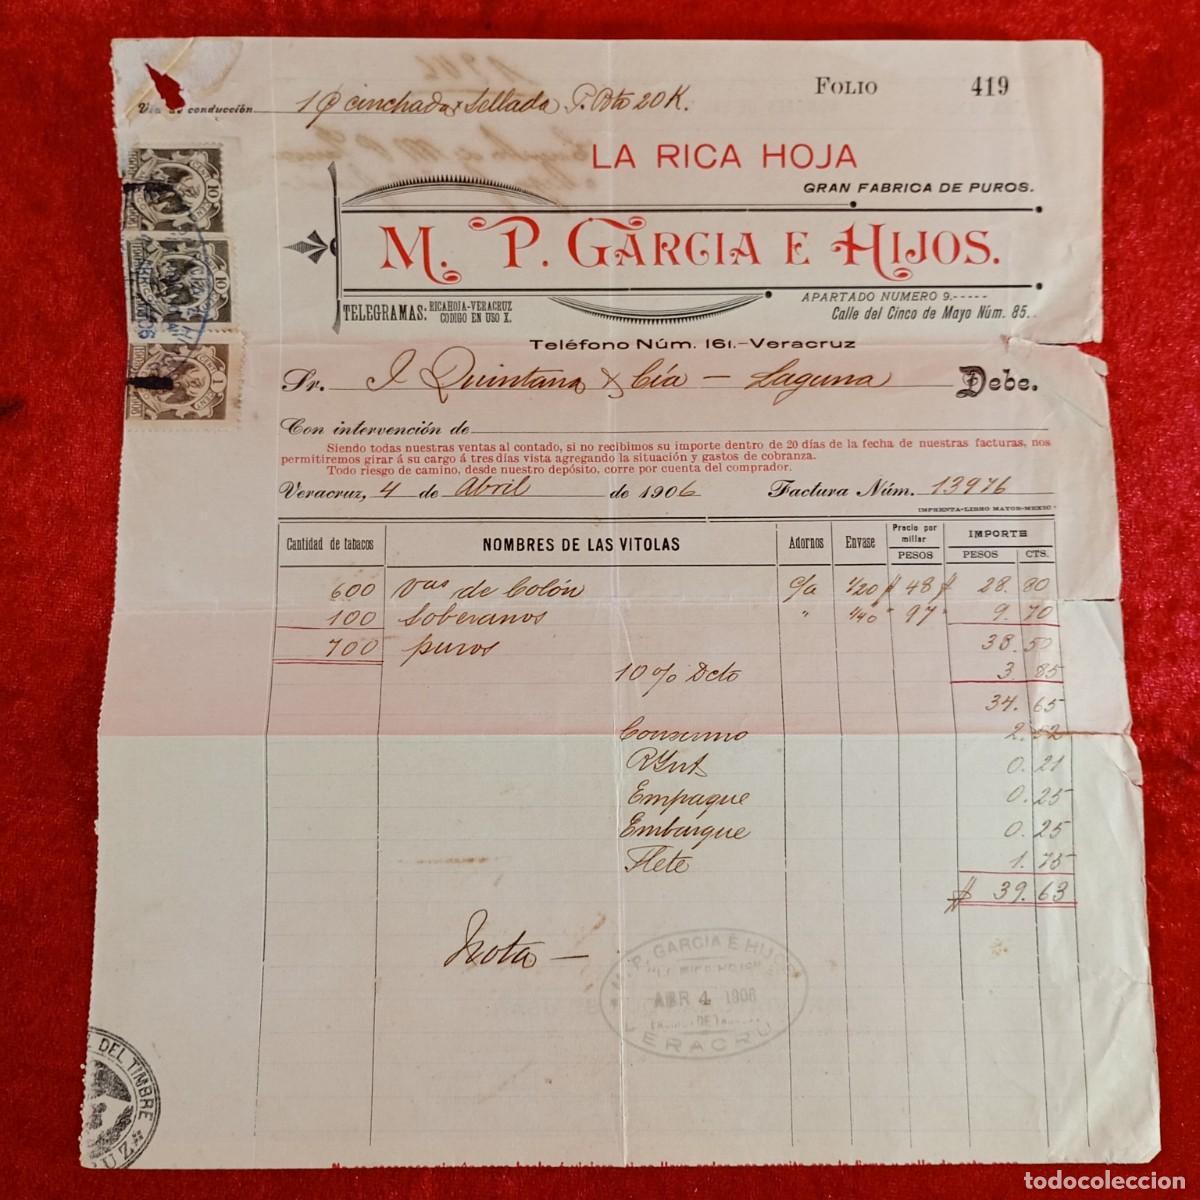 FOLIO 419
Via de conducción 1 cinchada y Sellada P. Bto 20 K.
LA RICA HOJA
GRAN FABRICA DE PUROS.
M. P. GARCIA E HIJOS.
TELEGRAMAS: RICAHOJA-VERACRUZ
CODIGO EN USO X.
APARTADO NUMERO 9.-----
Calle del Cinco de Mayo Núm. 85..
Teléfono Núm. 161.-Veracruz
Sr. J Quintana y Cía - Laguna Debe.
Con intervención de
Siendo todas nuestras ventas al contado, si no recibimos su importe dentro de 20 días de la fecha de nuestras facturas, nos
permitiremos girar á su cargo á tres días vista agregando la situación y gastos de cobranza.
Todo riesgo de camino, desde nuestro depósito, corre por cuenta del comprador.
Veracruz, 4 de Abril de 1906 Factura Núm. 13976
IMPRENTA-LIBRO MAYOR-MEXICO
Cantidad de tabacos NOMBRES DE LAS VITOLAS Adornos Envase Precio por millar PESOS IMPORTE PESOS CTS.
600 Vas de Colón c/a 1/20 $ 48 $ 28. 80
100 Soberanos " 1/40 " 97 " 9. 70
700 puros 38. 50
10 % Dcto 3. 85
34. 65
Consumo 2. 52
0. 21
Empaque 0. 25
Embarque 0. 25
Flete 1. 75
$ 39. 63
Nota -
M. P. GARCIA E HIJOS
"LA RICA HOJA"
ABR 4 1906
VERACRUZ
DEL TIMBRE
10
10
1
todocoleccion